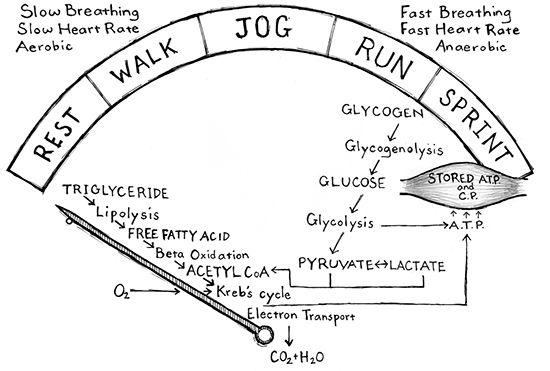 Slow Breathing
Slow Heart Rate
Aerobic
Fast Breathing
Fast Heart Rate
Anaerobic
REST
WALK
JOG
RUN
SPRINT
GLYCOGEN
Glycogenolysis
GLUCOSE
Glycolysis
PYRUVATE LACTATE
STORED A.T.P.
and
C.P.
A.T.P.
TRIGLYCERIDE
Lipolysis
FREE FATTY ACID
Beta Oxidation
ACETYL CoA
Kreb's cycle
O2
Electron Transport
CO2+H2O